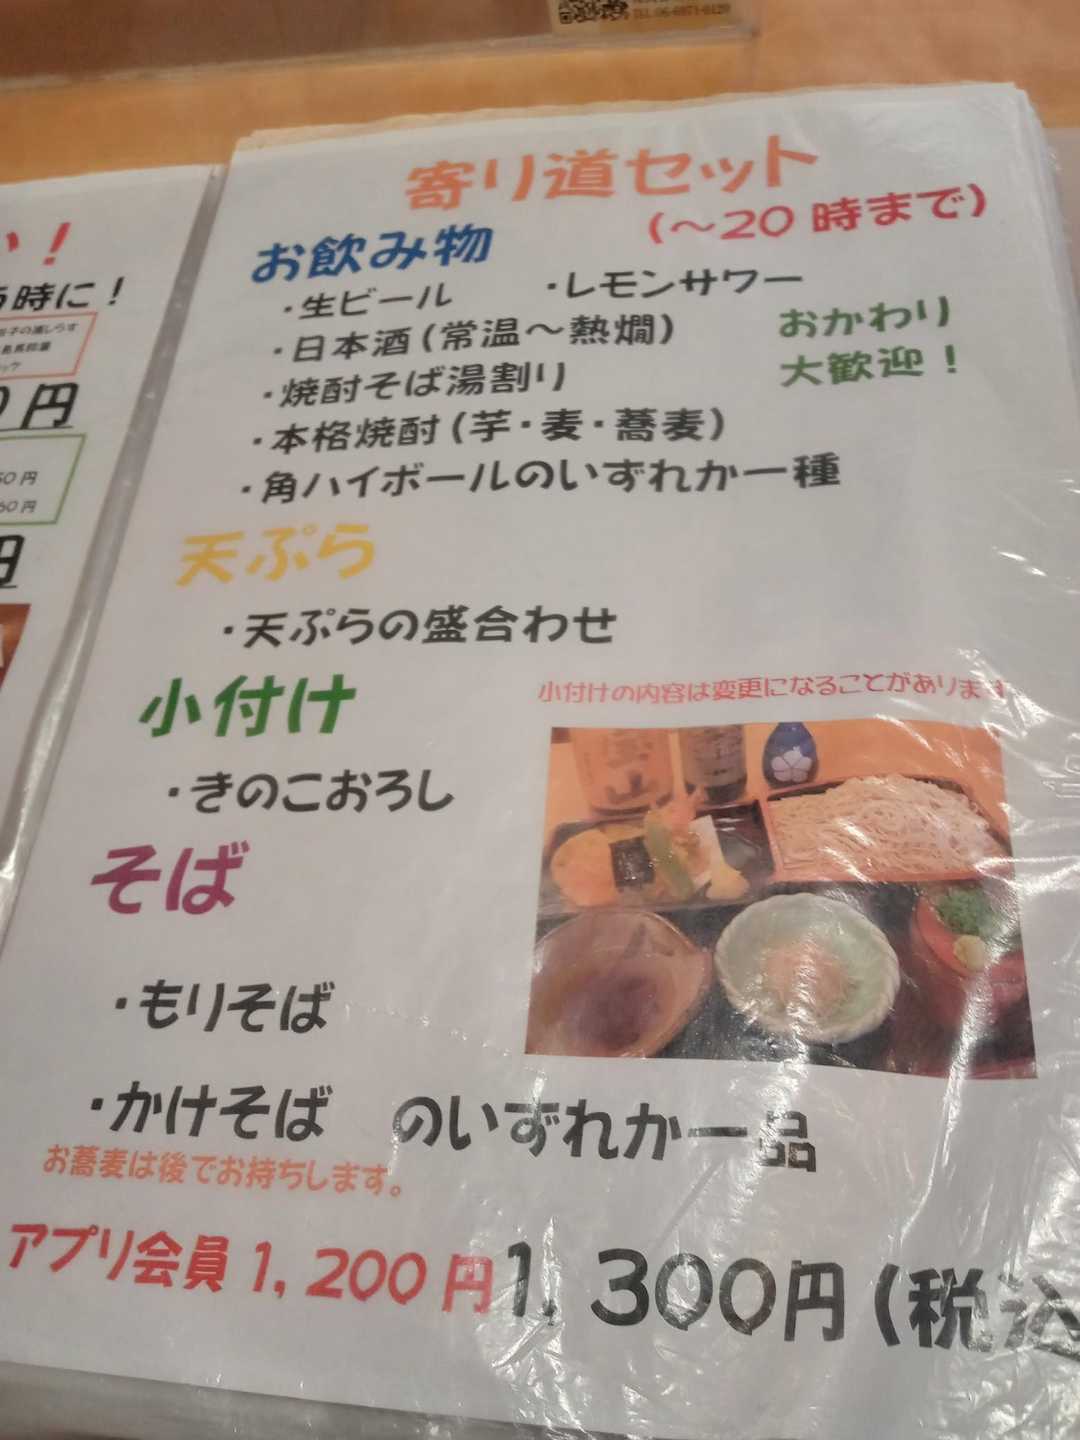 TEL:06-6971-0120
い！
時に！
円
50円
60円
円
寄り道セット
(～20時まで)
お飲み物
・生ビール ・レモンサワー
・日本酒(常温～熱燗)
おかわり
大歓迎！
・焼酎そば湯割り
・本格焼酎(芋・麦・蕎麦)
・角ハイボールのいずれか一種
天ぷら
・天ぷらの盛合わせ
小付け
小付けの内容は変更になることがあります
・きのこおろし
そば
・もりそば
・かけそば のいずれか一品
お蕎麦は後でお持ちします。
アプリ会員1,200円 1,300円(税込